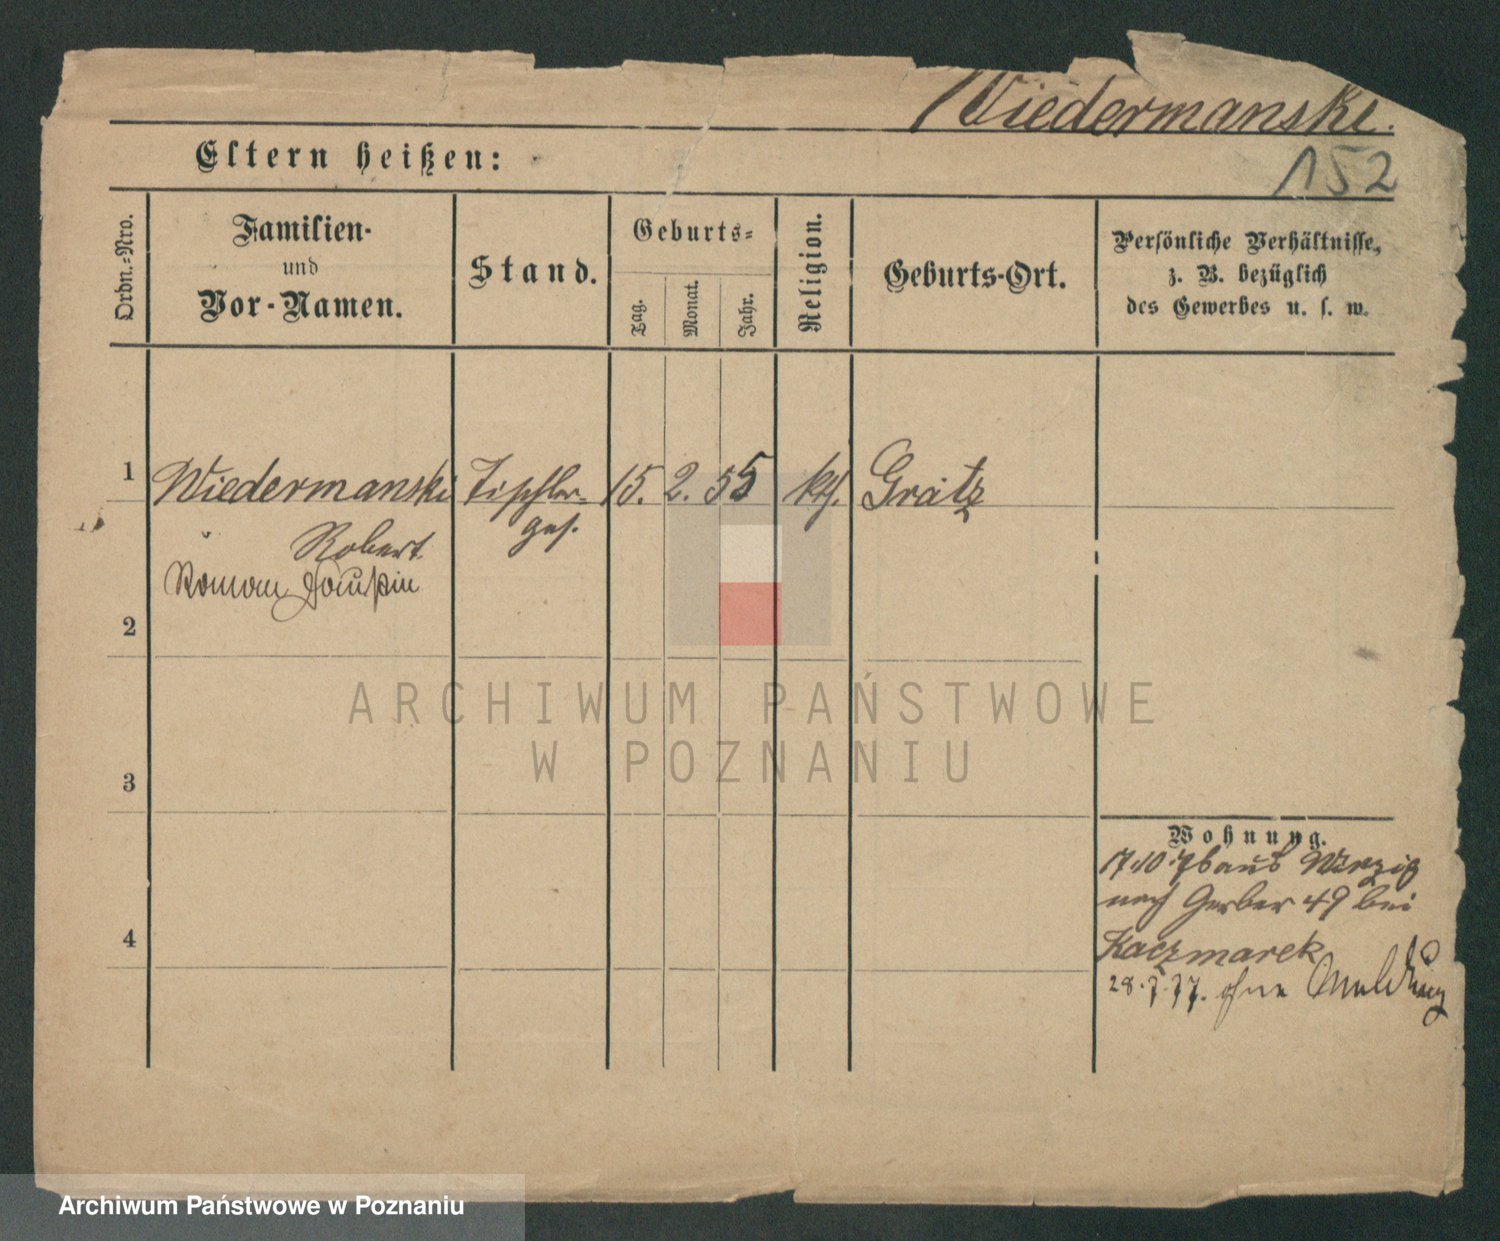 Wiedermanski.
152
Eltern heißen:
Ordn.-Nro.
Familien-
und
Vor-Namen.
Stand.
Geburts-
Tag.
Monat.
Jahr.
Religion.
Geburts-Ort.
Persönliche Verhältnisse,
z. B. bezüglich
des Gewerbes u. s. w.
1 Wiedermanski Tischler- 15. 2. 55 kth. Grätz
Robert ges.
Roman
2
3
4
Wohnung.
17.10.76 aus Wirzig
nach Gerber 49 bei
Kaczmarek
28.7.77. ohne Meldung
ARCHIWUM PAŃSTWOWE
W POZNANIU
Archiwum Państwowe w Poznaniu